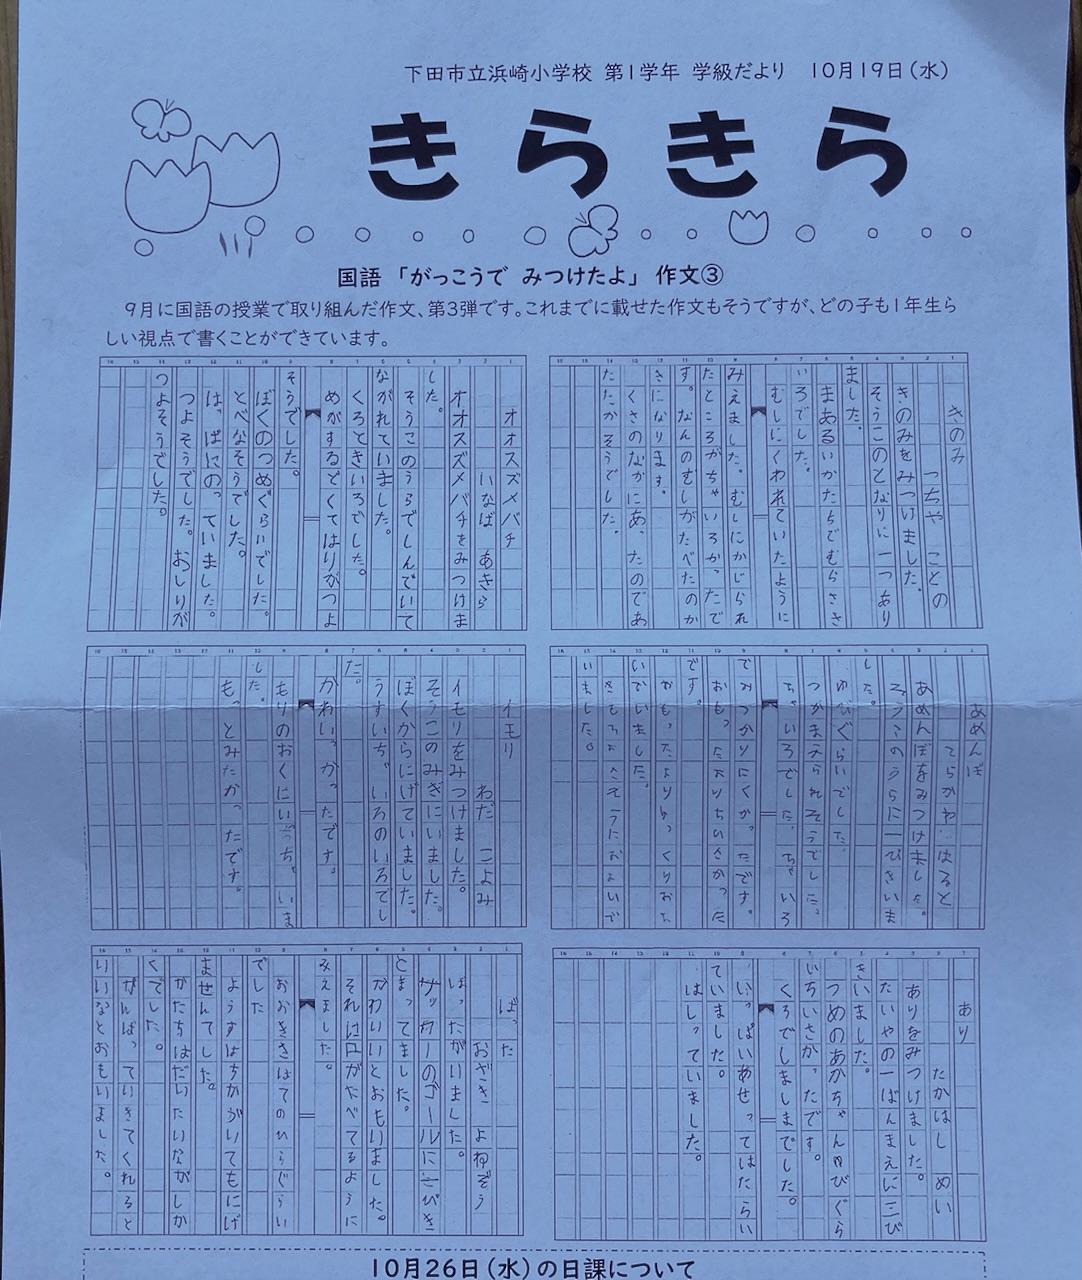 下田市立浜崎小学校 第1学年 学級だより 10月19日(水)
きらきら
国語 「がっこうで みつけたよ」 作文③
9月に国語の授業で取り組んだ作文、第3弾です。これまでに載せた作文もそうですが、どの子も1年生ら
しい視点で書くことができています。
きのみ
つちや ことの
きのみをみつけました。
そうこのとなりに一つあり
ました。
まあるいかたちでむらさき
いろでした。
むしにくわれていたように
みえました。むしにかじられ
たところがちゃいろかったで
す。なんのむしがたべたのか
きになります。
くさのなかにあったのであ
たたかそうでした。
オオスズメバチ
いなば あきら
オオスズメバチをみつけま
した。
そうこのうらでしんでいて
ながれていました。
くろときいろでした。
めがするどくてはりがつよ
そうでした。
ぼくのつめぐらいでした。
とべなそうでした。
はっぱにのっていました。
つよそうでした。おしりが
つよそうでした。
あめんぼ
てらかわ はると
あめんぼをみつけました。
そうこのうらに一ぴきいま
した。
ゆびぐらいでした。
つかまえられそうでした。
ちゃいろでした。ちゃいろ
でみつかりにくかったです。
おもったよりちいさかった
です。
おもったよりゆっくりおよ
いでいました。
きもちよさそうにおよいで
いました。
イモリ
わだ こよみ
イモリをみつけました。
そうこのみぎにいました。
ぼくからにげていました。
うすいちゃいろのいろでし
た。
かわいかったです。
もりのおくにいっちゃいま
した。
もっとみたかったです。
あり
たかはし めい
ありをみつけました。
たいやの一ばんまえに三び
きいました。
つめのあかちゃんゆびぐら
いちいさかったです。
くろでしましまでした。
いっぱいあせってはたらい
ていました。
はしっていました。
ばった
おざき よねぞう
ばったがいました。
サッカーのゴールに二ひき
とまってました。
かわいいとおもいました。
それに口がたべてるように
みえました。
おおきさはてのひらぐらい
でした
ようすはちかづいてもにげ
ませんでした。
かたちはだいたいながしか
くでした。
がんばっていきてくれると
いいなとおもいました。
10月26日(水)の日課について